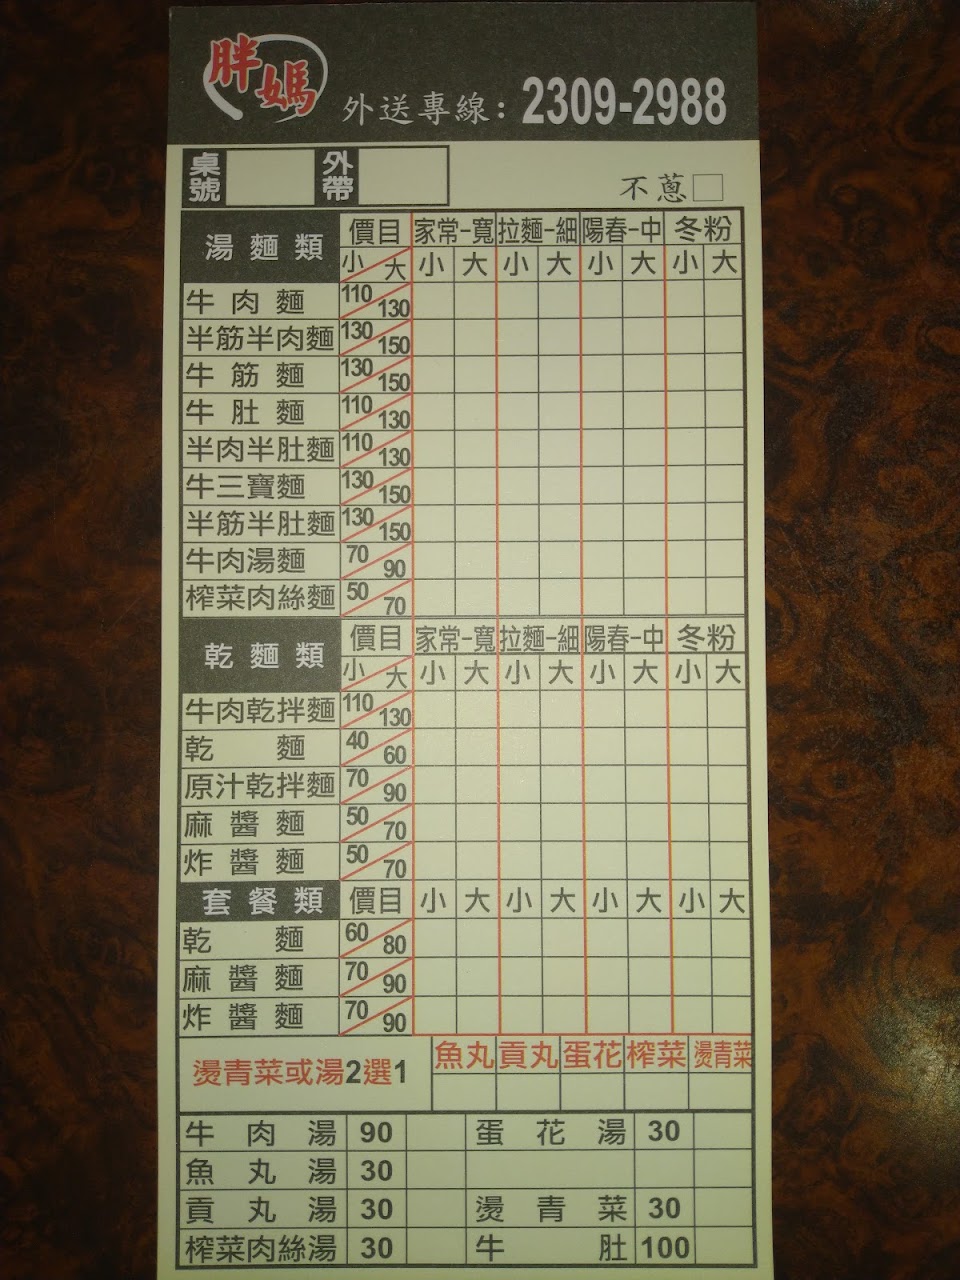 胖媽 外送專線：2309-2988
桌號 外帶 不蔥□
湯麵類 價目 家常-寬 拉麵-細 陽春-中 冬粉
小 大 小 大 小 大 小 大 小 大
牛肉麵 110 130
半筋半肉麵 130 150
牛筋麵 130 150
牛肚麵 110 130
半肉半肚麵 110 130
牛三寶麵 130 150
半筋半肚麵 130 150
牛肉湯麵 70 90
榨菜肉絲麵 50 70
乾麵類 價目 家常-寬 拉麵-細 陽春-中 冬粉
小 大 小 大 小 大 小 大 小 大
牛肉乾拌麵 110 130
乾麵 40 60
原汁乾拌麵 70 90
麻醬麵 50 70
炸醬麵 50 70
套餐類 價目 小 大 小 大 小 大 小 大
乾麵 60 80
麻醬麵 70 90
炸醬麵 70 90
燙青菜或湯2選1 魚丸 貢丸 蛋花 榨菜 燙青菜
牛肉湯 90 蛋花湯 30
魚丸湯 30
貢丸湯 30 燙青菜 30
榨菜肉絲湯 30 牛肚 100